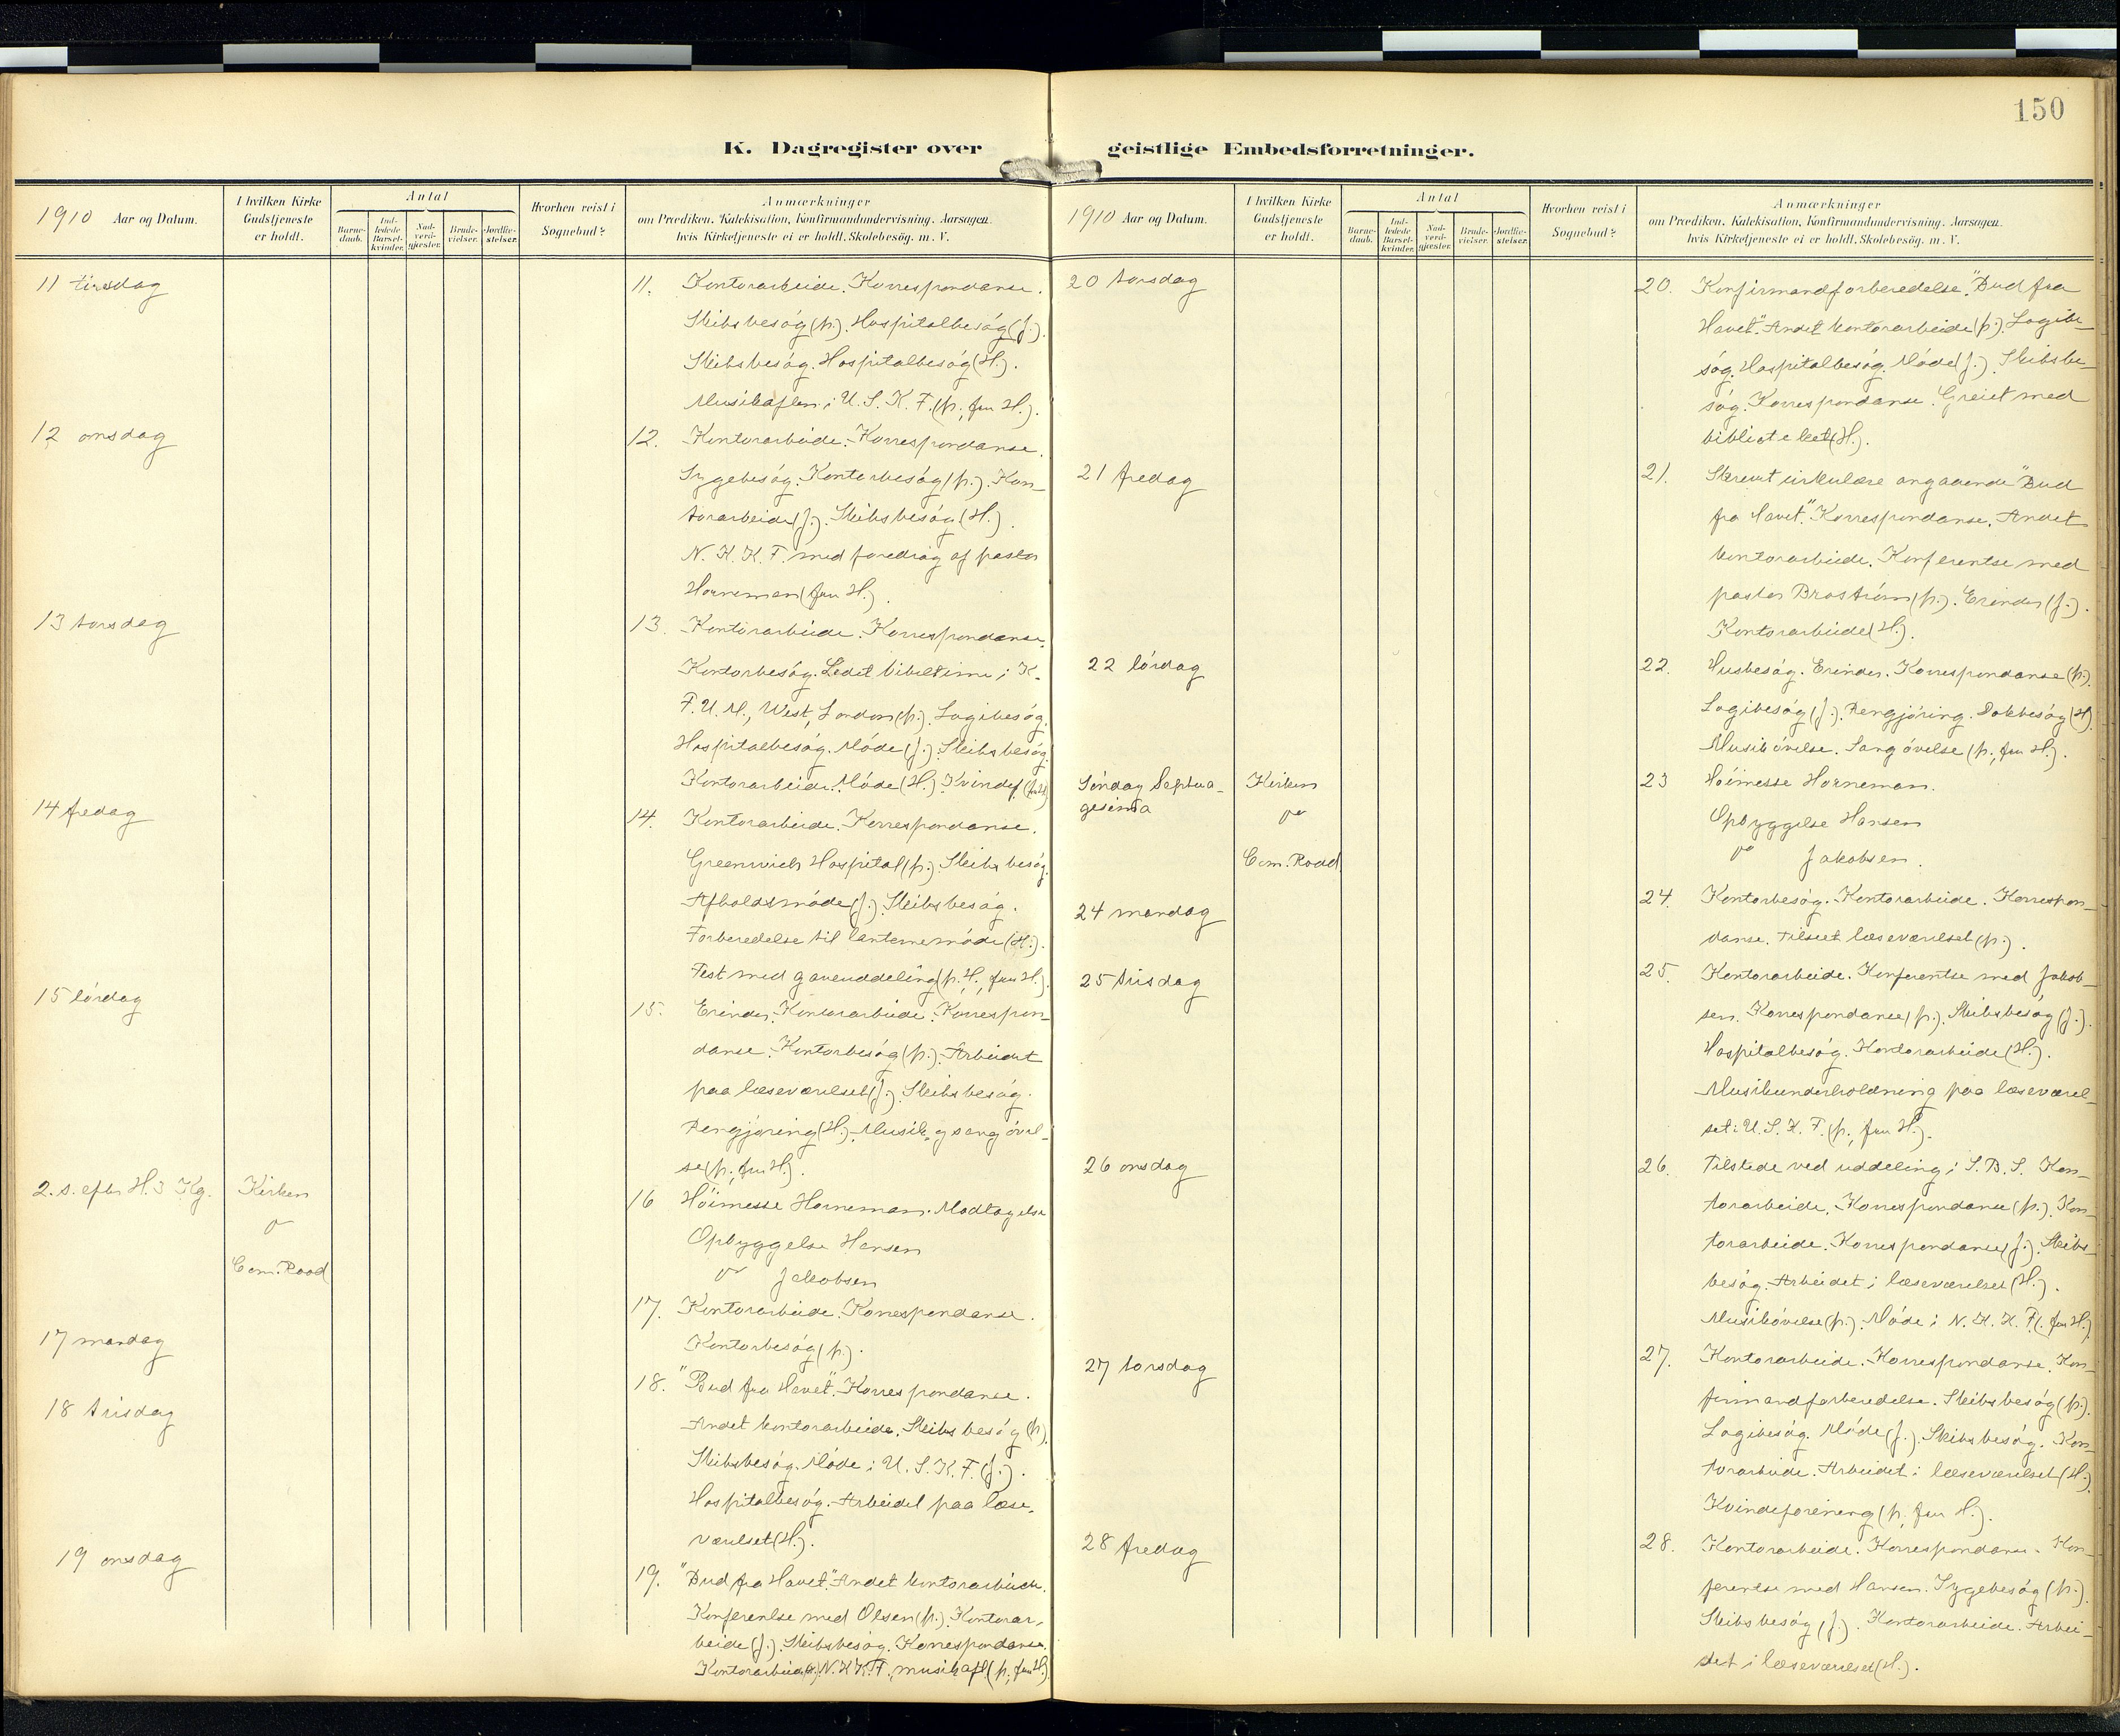 150
K. Dagregister over geistlige Embedsforretninger.
1910 Aar og Datum.
I hvilken Kirke Gudstjeneste er holdt.
Antal
Barne-daab.
Ind-ledede Barsel-kvinder.
Nad-verd-gjæster.
Brude-vielser.
Jordfæ-stelser.
Hvorhen reist i Sognebud?
Anmærkninger
om Prædiken, Katekisation, Konfirmandundervisning, Aarsagen
hvis Kirketjeneste ei er holdt, Skolebesøg. m. V.
11 tirsdag
11. Kontorarbeide. Korrespondanse.
Skibsbesøg (p.). Hospitalbesøg (J.).
Skibsbesøg. Hospitalbesøg (H.).
Musikaften i U. S. K. F. (p., fru H.).
12 onsdag
12. Kontorarbeide. Korrespondanse.
Sygebesøg. Kontorbesøg (p.). Kon-
torarbeide (J.). Skibsbesøg (H.).
N. K. K. F. med foredrag af pastor
Horneman (fru H.).
13 torsdag
13. Kontorarbeide. Korrespondanse.
Kontorbesøg. Ledet bibeltime i K.
F. U. M., West, London (p.). Logibesøg.
Hospitalbesøg. Møde (J.). Skibsbesøg.
Kontorarbeide. Møde (H.). Kvindef. (fru H.)
14 fredag
14. Kontorarbeide. Korrespondanse.
Greenwich Hospital (p.). Skibsbesøg.
Afholdsmøde (J.). Skibsbesøg.
Forberedelse til lanternemøde (H.).
Fest med gaveuddeling (p., H., fru H.).
15 lørdag
15. Erinder. Kontorarbeide. Korrespon-
danse. Kontorbesøg (p.). Arbeidet
paa læseværelset (J.). Skibsbesøg.
Rengjøring (H.). Musik og sangøvel-
se (p., fru H.).
2. s. efter H. 3 Kg.
Kirken
"
Com. Road
16 Høimesse Horneman. Modtagelse
Opbyggelse Hansen
" Jakobsen
17 mandag
17. Kontorarbeide. Korrespondanse.
Kontorbesøg (p.).
18 tirsdag
18. "Bud fra Havet". Korrespondanse.
Andet kontorarbeide. Skibsbesøg (p.)
Skibsbesøg. Møde i U. S. K. F. (J.).
Hospitalbesøg. Arbeidet paa læse-
værelset (H.).
19 onsdag
19. "Bud fra Havet." Andet kontorarbeide.
Konferentse med Olsen (p.). Kontorar-
beide (J.). Skibsbesøg. Korrespondanse.
Kontorarbeide (H.). N. K. K. F., musikaft. (p., fru H.)
1910 Aar og Datum.
I hvilken Kirke Gudstjeneste er holdt.
Antal
Barne-daab.
Ind-ledede Barsel-kvinder.
Nad-verd-gjæster.
Brude-vielser.
Jordfæ-stelser.
Hvorhen reist i Sognebud?
Anmærkninger
om Prædiken, Katekisation, Konfirmandundervisning, Aarsagen
hvis Kirketjeneste ei er holdt, Skolebesøg. m. V.
20 torsdag
20. Konfirmandforberedelse. "Bud fra
Havet." Andet kontorarbeide (p.). Logibe-
søg. Hospitalbesøg. Møde (J.). Skibsbe-
søg. Korrespondanse. Greiet med
biblioteket (H.).
21 fredag
21. Skrevet cirkulære angaaende "Bud
fra Havet." Korrespondanse. Andet
kontorarbeide. Konferentse med
pastor Broström (p.). Erinder (J.).
Kontorarbeide (H.).
22 lørdag
22. Husbesøg. Erinder. Korrespondanse (p.).
Logibesøg (J.). Rengjøring. Dokbesøg (H.)
Musikøvelse. Sangøvelse (p., fru H.).
Søndag Septua-
gesima
Kirken
"
Com. Road
23 Høimesse Horneman.
Opbyggelse Hansen
" Jakobsen.
24 mandag
24. Kontorbesøg. Kontorarbeide. Korrespon-
danse. Tilseet læseværelset (p.).
25 tirsdag
25. Kontorarbeide. Konferentse med Jakob-
sen. Korrespondanse (p.). Skibsbesøg (J.).
Hospitalbesøg. Kontorarbeide (H.).
Musikunderholdning paa læseværel-
set i U. S. K. F. (p., fru H.).
26 onsdag
26. Tilstede ved uddeling i S. B. S. Kon-
torarbeide. Korrespondanse (p.). Kon-
torarbeide. Korrespondanse (J.). Skibs-
besøg. Arbeidet i læseværelset (H.).
Musikøvelse (p.). Møde i N. K. K. F. (fru H.)
27 torsdag
27. Kontorarbeide. Korrespondanse. Kon-
firmandforberedelse. Skibsbesøg (p.).
Logibesøg. Møde (J.). Skibsbesøg. Kon-
torarbeide. Arbeidet i læseværelset (H.)
Kvindeforening (p., fru H.).
28 fredag
28. Kontorarbeide. Korrespondanse. Kon-
ferentse med Hansen. Sygebesøg (p.).
Skibsbesøg (J.). Kontorarbeide. Arbei-
det i læseværelset (H.).